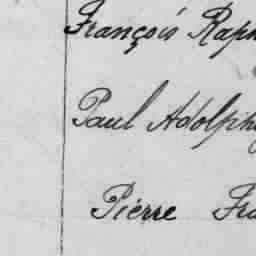 François Raph
Paul Adolph
Pierre Fra